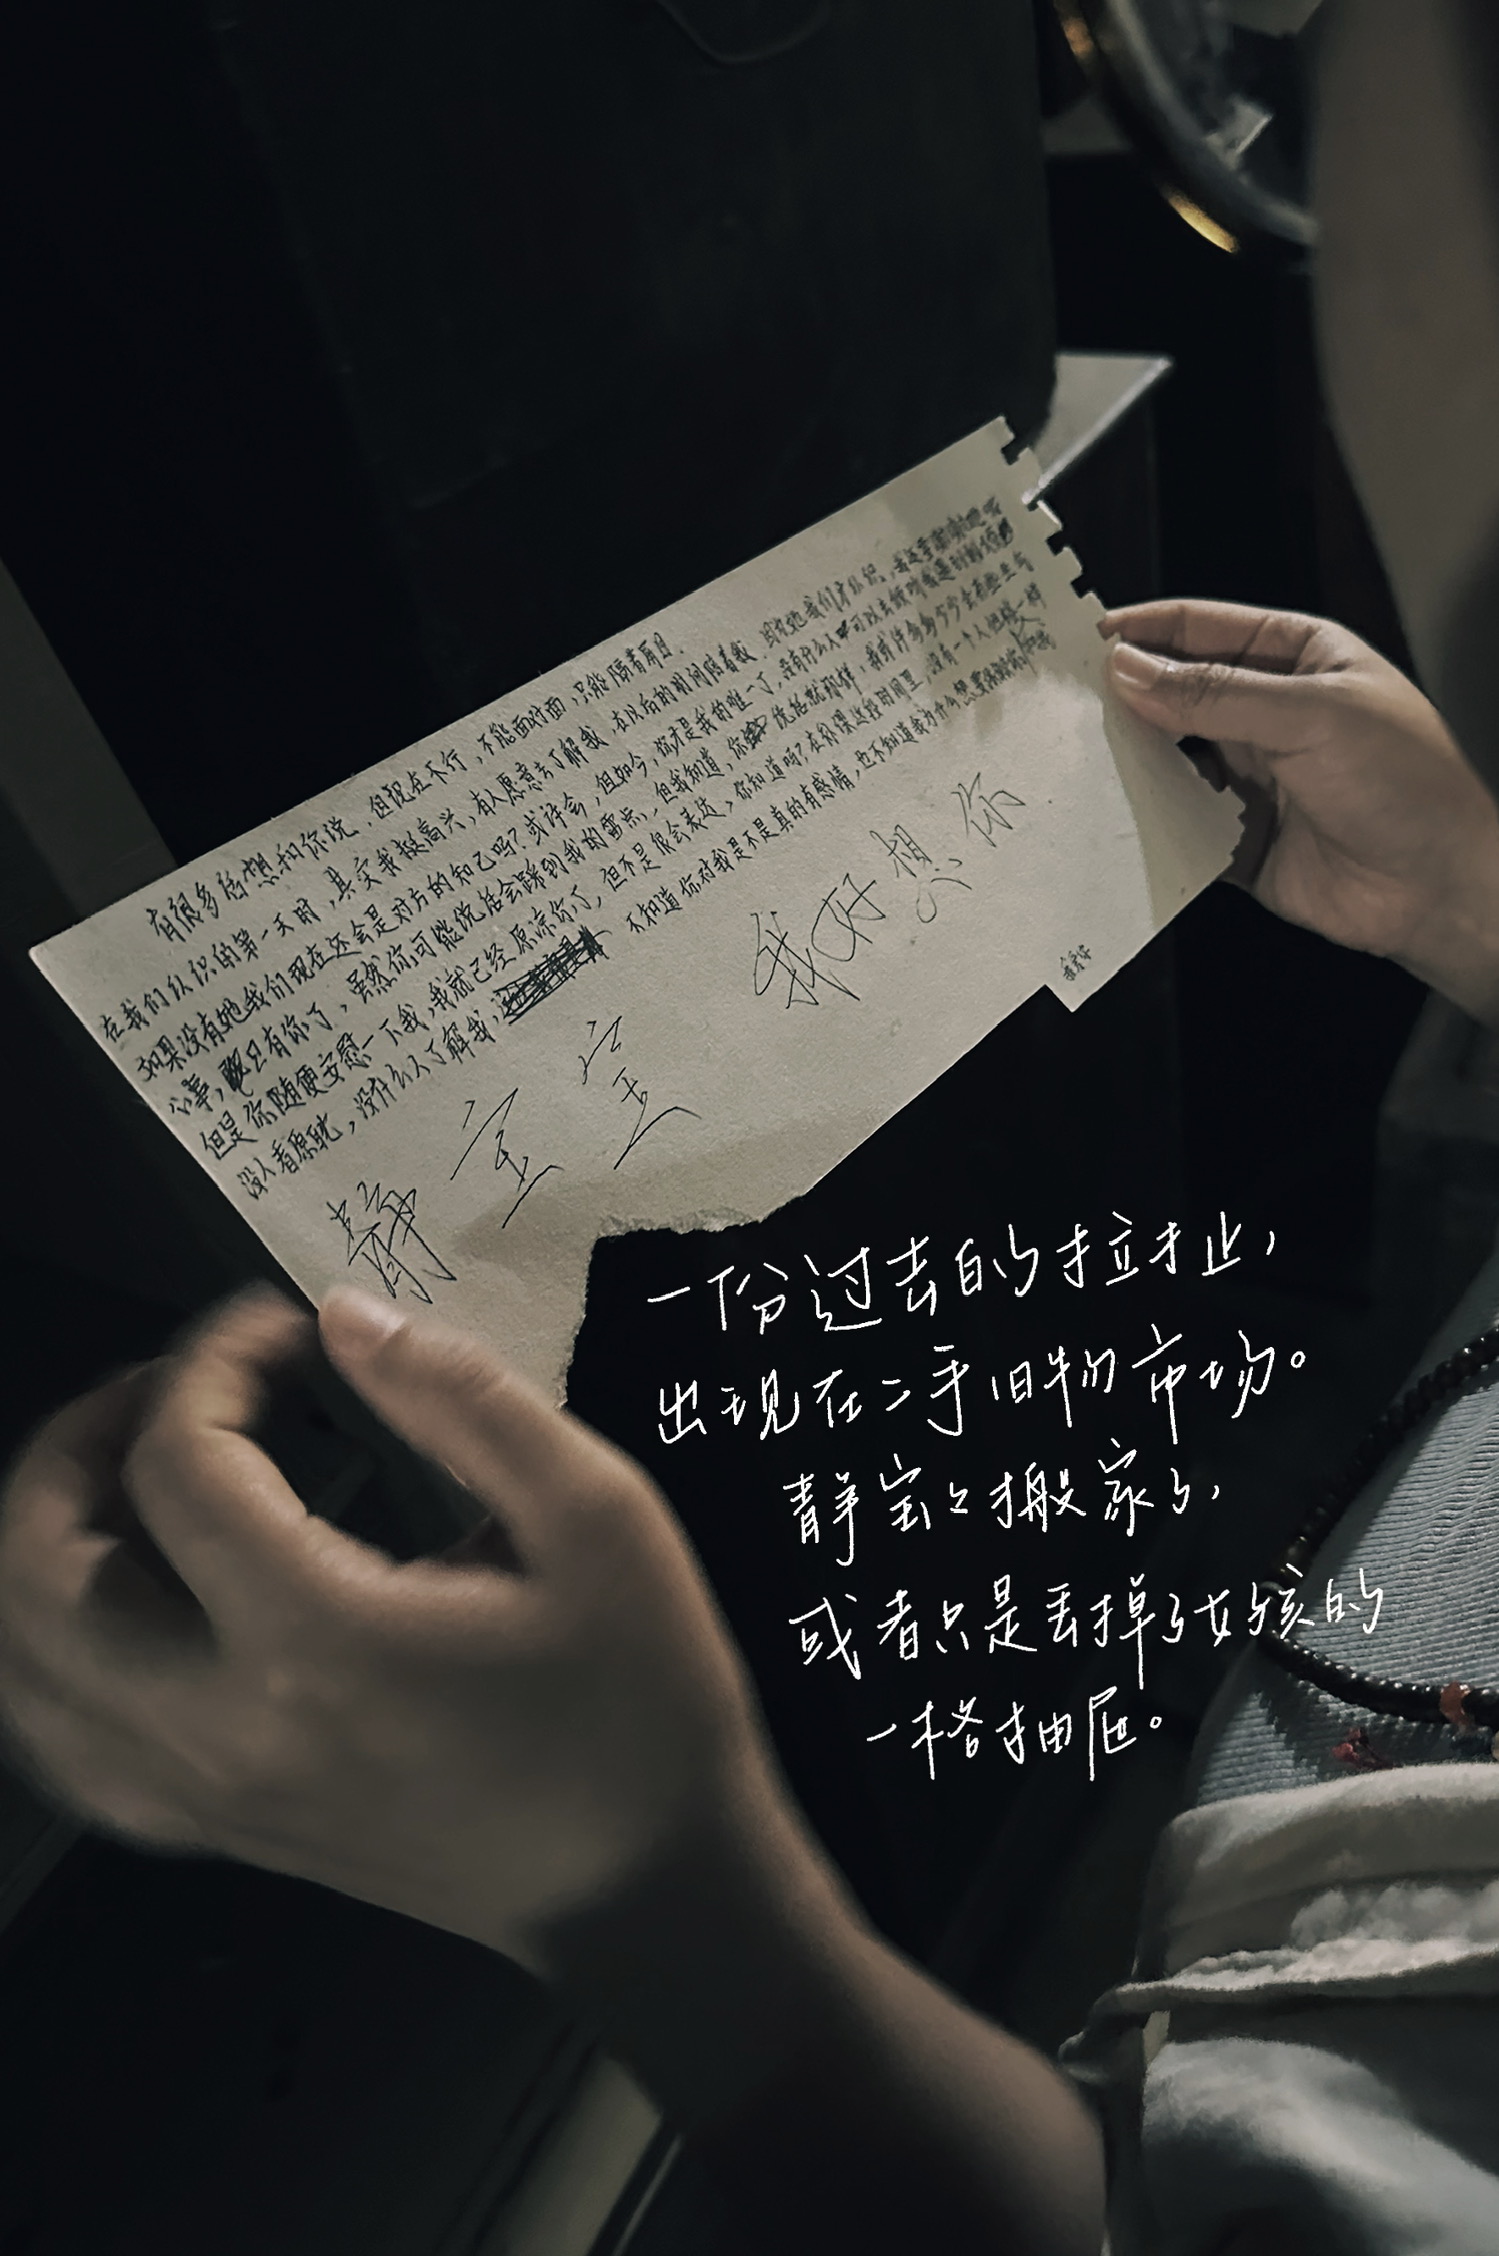 有很多话想和你说，但现在不行，不能面对面，只能隔着屏目．
在我们认识的第一天时，其实我挺高兴，有人愿意去了解我，在以后的时间陪着我．因为她我们才认识，
如果没有她我们现在还会是对方的知己吗？或许会，但如今，你才是我的唯一了，没有什么人可以去倾听我
心事，只有你了，虽然你可能说话会踩到我的雷点，但我知道，你说话就那样，我或许多多少少会有些生气
但是你随便安慰一下我，我就已经原谅你了，但不是很会表达，你知道吗？在 这段时间里，没有一个人
没人看 ，没什么人了解我， 不知道你对我是不是真的有感情，也不知道我为什么想要
静宝宝 我好想你
一份过去的拉扯，
出现在二手旧物市场。
静宝々搬家了，
或者只是丢掉了女孩的
一格抽屉。